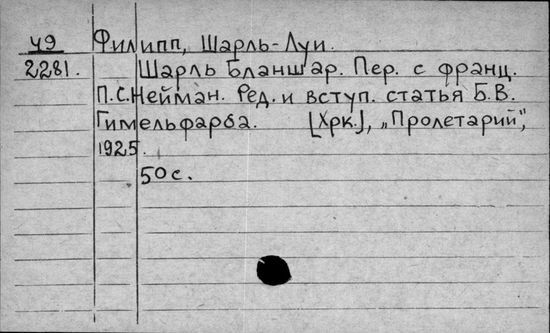 Ч9 Филипп, Шарль-Луи.
2281. Шарль Бланшар. Пер. с франц.
П.С.Нейман. Ред. и вступ. статья Б.В.
Гимельфарба. [Хрк.], „Пролетарий",
1925.
50 с.